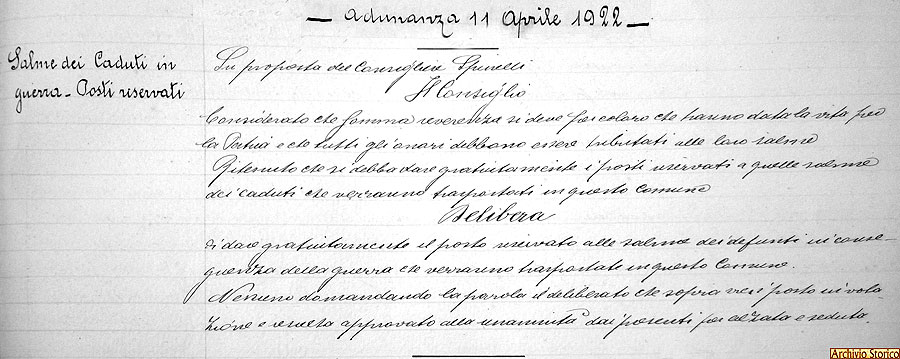 — Adunanza 11 Aprile 1922 —
Salme dei Caduti in
guerra - Posti riservati
Su proposta del Consigliere Spinelli
Il Consiglio
Considerato che somma reverenza si deve per coloro che hanno data la vita per
la Patria e che tutti gli onori debbono essere tributati alle loro salme
Ritenuto che si debba dare gratuitamente i posti riservati a quelle salme
dei caduti che verranno trasportati in questo Comune
Delibera
di dare gratuitamente il posto riservato alle salme dei defunti in conse-
guenza della guerra che verranno trasportate in questo Comune.
Nessuno domandando la parola il deliberato che sopra vien posto in vota
zione e resulta approvato alla unanimità dai presenti per alzata e seduta.
Archivio Storico